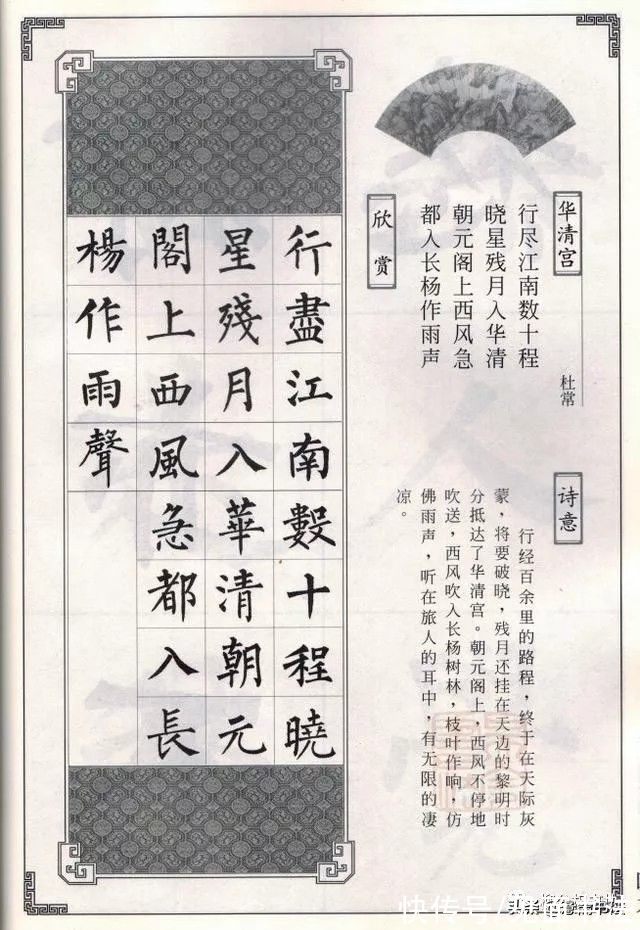 华清宫
杜常
行尽江南数十程
晓星残月入华清
朝元阁上西风急
都入长杨作雨声
欣赏
诗意
行经百余里的路程，终于在天际灰
蒙，将要破晓，残月还挂在天边的黎明时
分抵达了华清宫。朝元阁上，西风不停地
吹送，西风吹入长杨树林，枝叶作响，仿
佛雨声，听在旅人的耳中，有无限的凄
凉。
行盡江南數十程曉
星殘月入華清朝元
閣上西風急都入長
楊作雨聲
快传号/